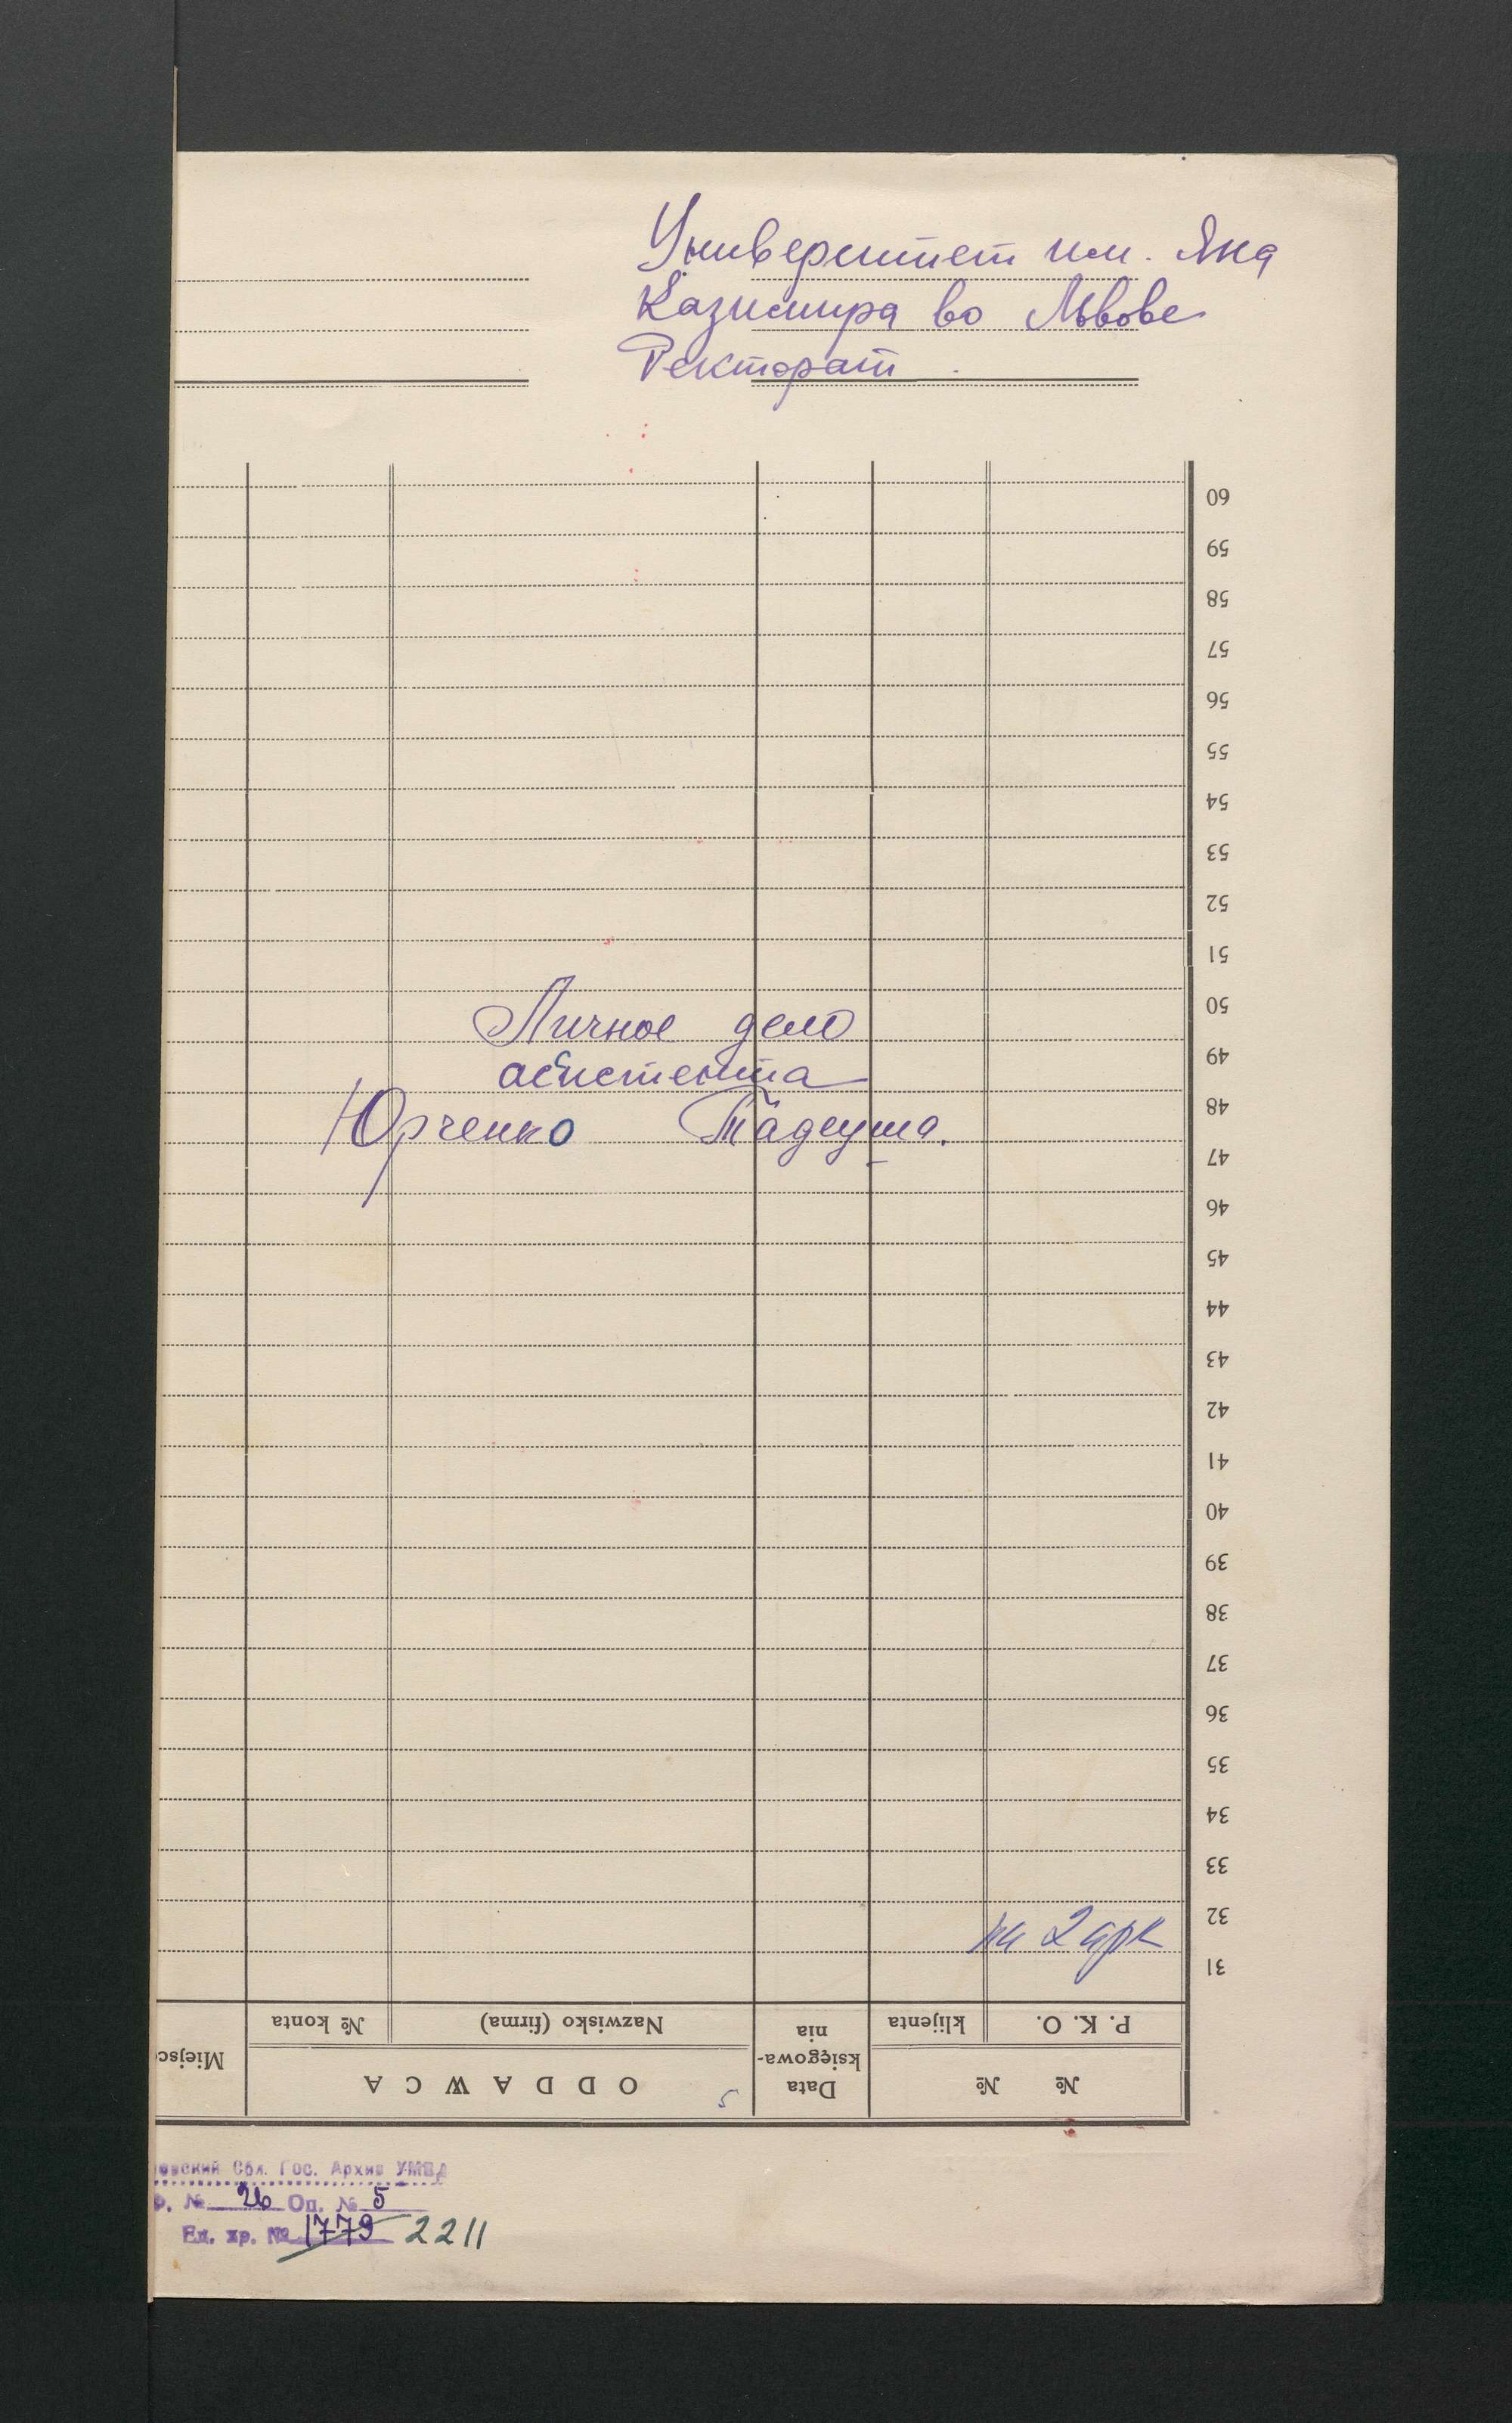 Университет им. Яна
Казимира во Львове
Ректорат.
60
59
58
57
56
55
54
53
52
51
50
Личное дело
49
ассистента
48
Юрченко Тадеуша.
47
46
45
44
43
42
41
40
39
38
37
36
35
34
33
32
на 2 арк
31
Miejsc № konta Nazwisko (firma) Data księgowa-nia klijenta P. K. O.
ODDAWCA 5 № №
овский Обл. Гос. Архив УМВД
Ф. № 26 Оп. № 5
Ед. хр. № 1779 2211